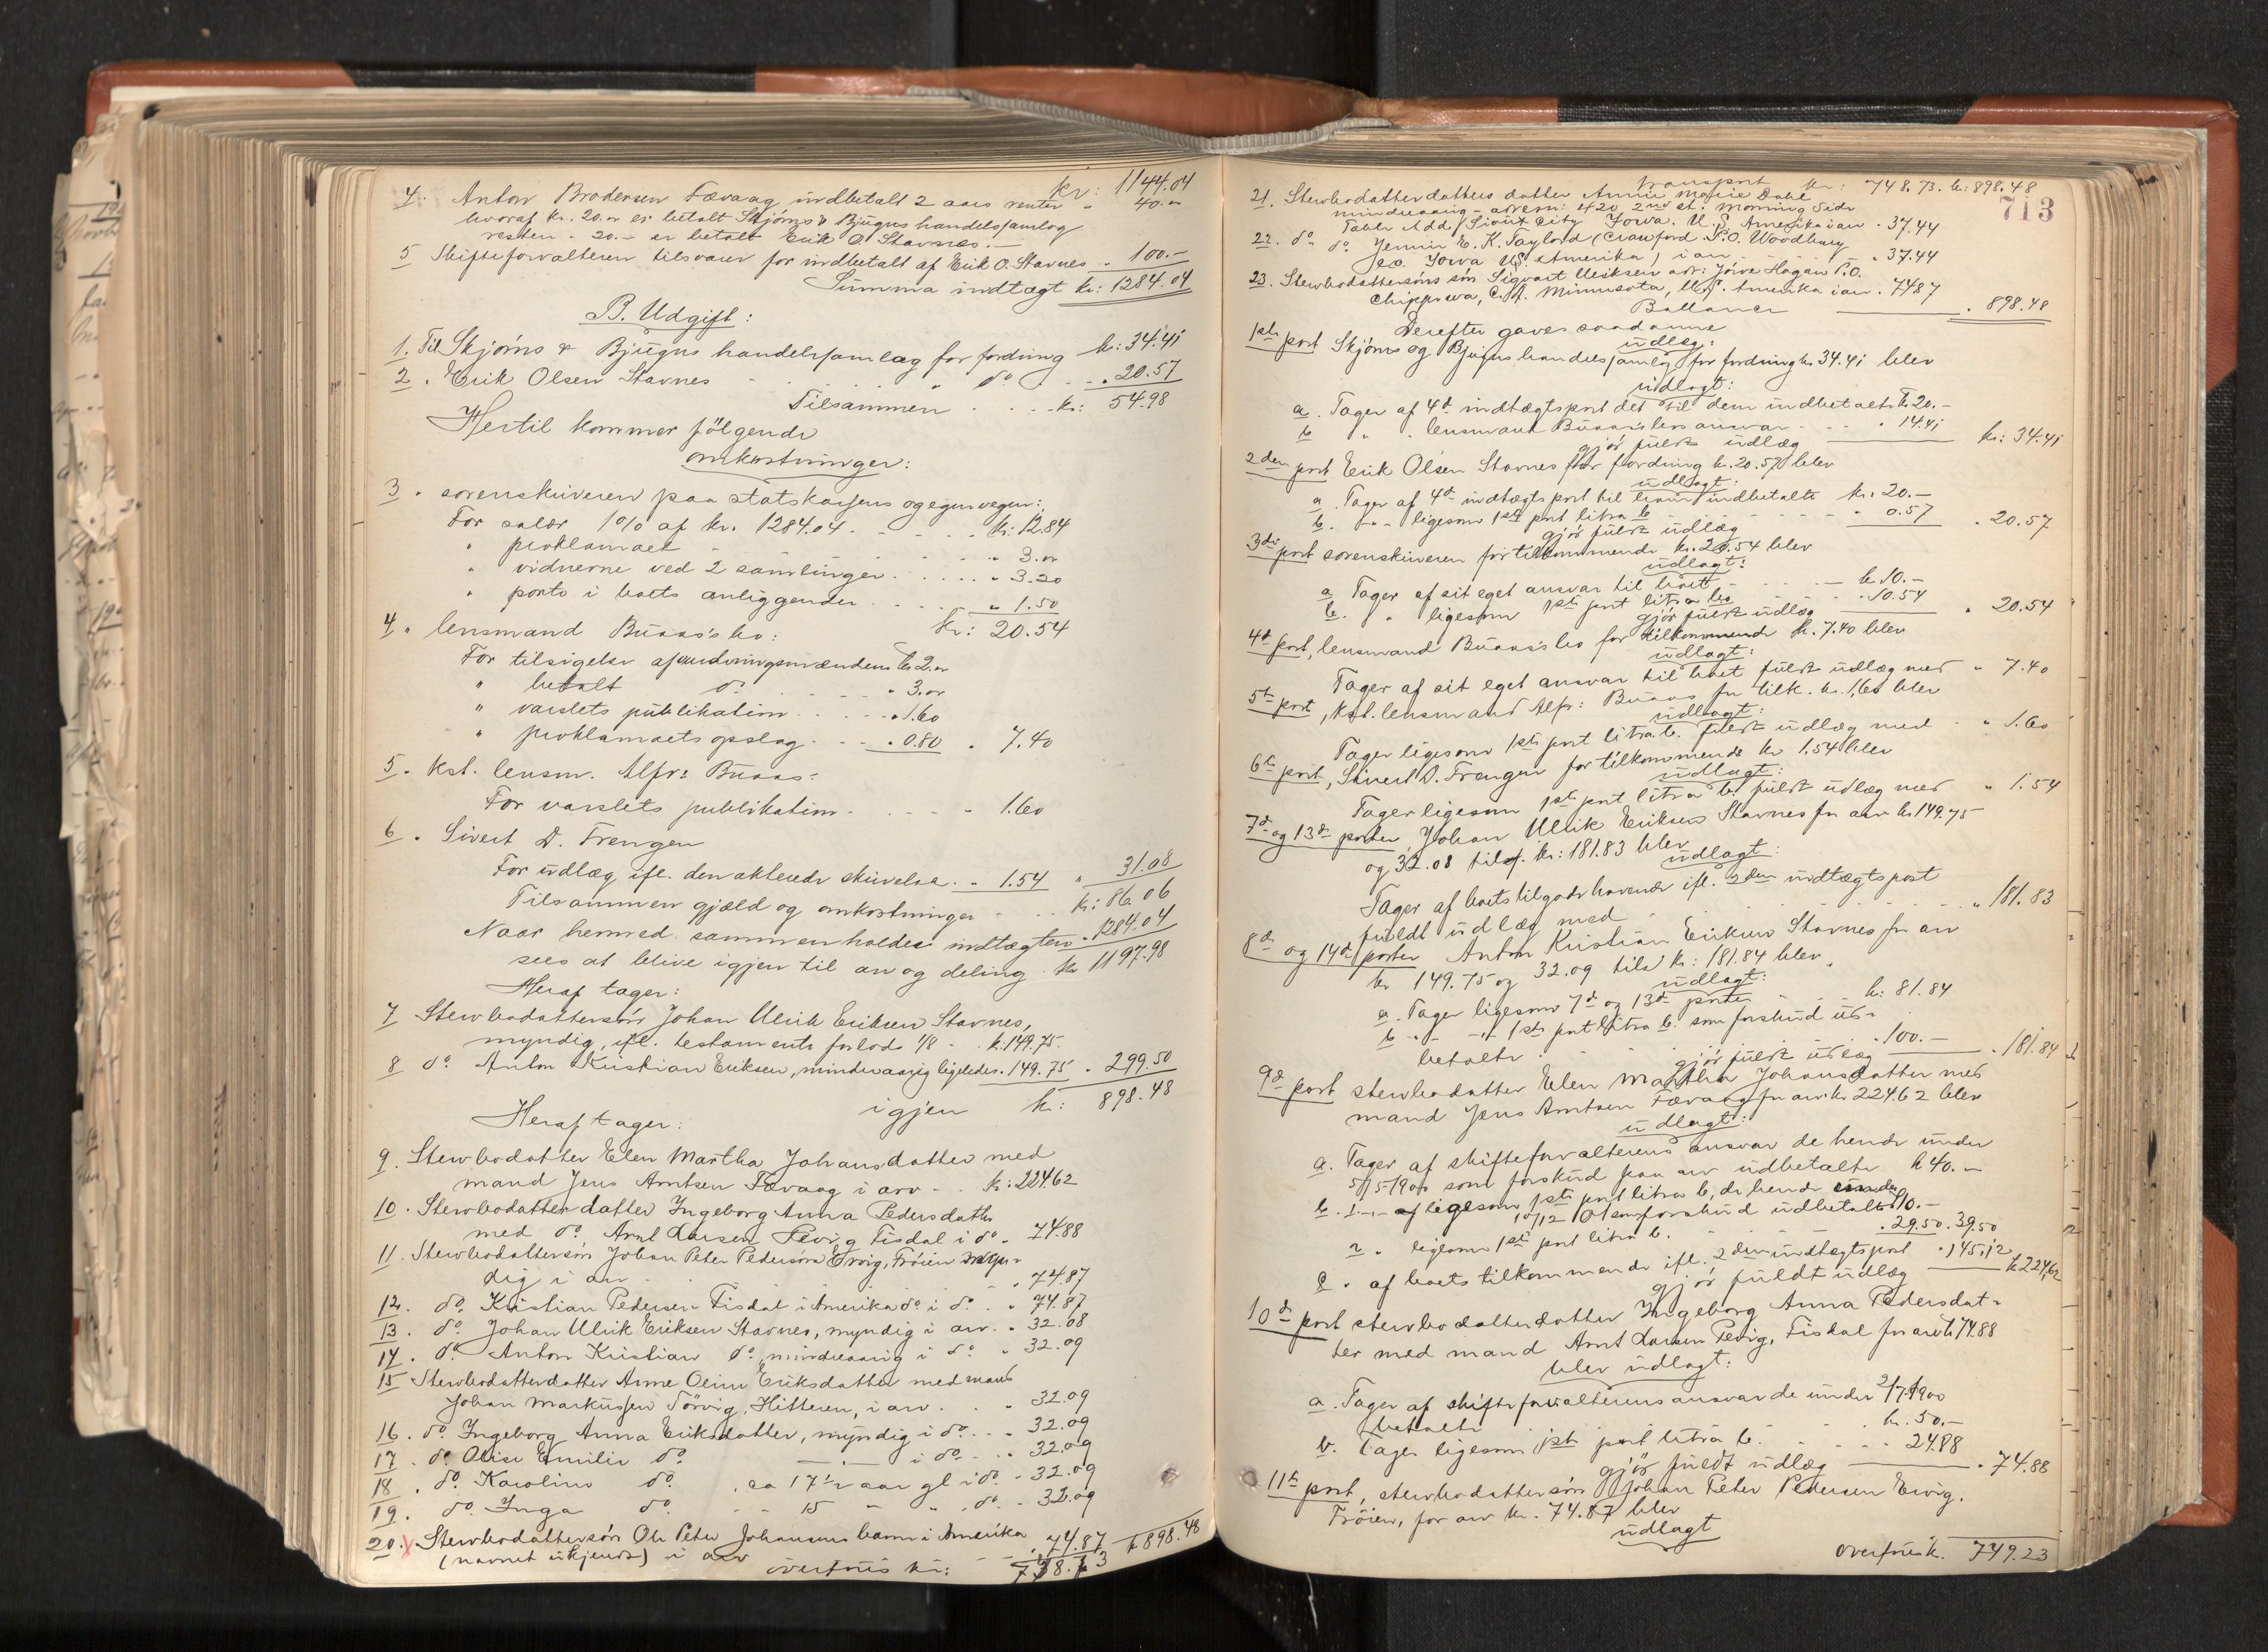 kr: 1144.04
4. Anton Brodersen Fævaag indbetalt 2 aars renter " 40.-
hvoraf kr. 20.- er betalt Skjørns & Bjugns handelssamlag
resten - 20.- er betalt Erik O. Stavnes.-
5 Skifteforvalteren tilsvarer for indbetalt af Erik O. Stavnes . 100.-
Summa indtægt kr: 1284.04
B. Udgift:
1. Til Skjørns & Bjugns handelssamlag for fordring kr: 34.41
2. Erik Olsen Stavnes - - - do - - . 20.57
Tilsammen . . . . kr: 54.98
Hertil kommer følgende
omkostninger:
3. sorenskriveren paa statskassens og egne vegne:
For salær 1% af kr. 1284.04 - - - - kr: 12.84
" proklamaet - - - - - " 3.-
" vidnerne ved 2 samlinger . . . . . " 3.20
" porto i boets anliggender . . . . " 1.50
kr: 20.54
4. lensmand Buaas's bo:
For tilsigelse af vurderingsmændene kr 2.-
" betalt do . . . - - " 3.-
" varslets publikation . . . . . " 1.60
" proklamaets opslag . - - . 0.80 . 7.40
5. Kst. lensm. Alfr: Buaas:
For varslets publikation - . . . - - 1.60
6. Sivert D. Frengen
For udlæg ifl. den akterede skrivelse . . 1.54 " 31.08
Tilsammen gjæld og omkostninger - . . kr: 86.06
Naar hermed sammenholdes indtægten . 1284.04
sees at blive igjen til arv og deling . kr 1197.98
Heraf tager:
7 Sterbodattersøn Johan Ulrik Eriksen Stavnes,
myndig, ifl. testamente forlods 1/8 - . kr. 149.75.
8 do Anton Kristian Eriksen, mindreaarig ligeledes . 149.75 . 299.50
igjen kr: 898.48
Heraf tager:
9. Sterbodatter Elen Martha Johansdatter med
mand Jens Arntsen Fævaag i arv - . . kr: 224.62
10. Sterbodatterdatter Ingeborg Anna Pedersdatter
med do. Arnt Larsen Revig Fisdal i do . 74.88
11. Sterbodattersøn Johan Peter Pedersen Ervig, Frøien myn-
dig i arv . . . . 74.87
12. do. Kristian Pedersen Fisdal i Amerika do i do . . " 74.87
13. do. Johan Ulrik Eriksen Stavnes, myndig i arv . . 32.08
14. do. Anton Kristian do, mindreaarig i do " 32.09
15 Sterbodatterdatter Anne Oline Eriksdatter med mand
Johan Markussen Sørvig, Hitteren, i arv . . . 32.09
16. do. Ingeborg Anna Eriksdatter, myndig i do . . . 32.09
17. do. Olise Emilie do. — " — i do . . . 32.09
18. do. Karoline do. , ca 17 1/2 aar gl i do . 32.09
19. do. Inga do. - - 15 " " , do. - 32.09
20. Sterbodattersøn Ole Peter Johansens barn i Amerika
(navnet ukjendt) i arv - - . 74.87 kr 898.48
overføres kr:
713
transport kr: 748.73. kr: 898.48
21. Sterbodatterdatters datter Annie Marie Dahl
mindreaarig - adresse: 420 2nd st. Morning Side
Add / Sioux City Jowa. U.S. Amerika i arv . 37.44
22. do. do. Jennie E. K. Taylord (Crawford P.O. Woodbury
Jowa US. Amerika) i arv . . . . 37.44
23. Sterbodattersøns søn Sigvart Ulriksen adr: Hagan P.O.
Chippewa, Minnesota, U.S. Amerika i arv . 74.87
Ballance . 898.48
Derefter gaves saadanne
udlæg:
1ste post Skjørns og Bjugns handelssamlag for fordring kr 34.41 blev
udlagt:
a. Tager af 4de indtægtspost det til dem indbetalte kr 20.-
b " . lensmand Buaas's bos ansvar - . . " 14.41
gjør fuldt udlæg kr: 34.41
2den post Erik Olsen Stavnes for fordring kr. 20.57 blev
udlagt:
a. Tager af 4de indtægtspost til ham indbetalte kr. 20.-
b. - " - ligesom 1ste post litra b - - - - - - - " 0.57
gjør fuldt udlæg . 20.57
3die post sorenskriveren for tilkommende kr. 20.54 blev
udlagt:
a Tager af sit eget ansvar til boet - - - - - kr 10.-
b. " ligesom 1ste post litra b . . . . 10.54
gjør fuldt udlæg " 20.54
4de post, lensmand Buaas's bo for tilkommende kr. 7.40 blev
udlagt:
Tager af sit eget ansvar til boet fuldt udlæg med " 7.40
5te post, kst. lensmand Alfr: Buaas for tilk. kr. 1,60 blev
udlagt:
Tager ligesom 1ste post litra b. fuldt udlæg med " 1.60
6te post, Sivert D. Frengen for tilkommende kr 1.54 blev
udlagt:
Tager ligesom 1ste post litra b. fuldt udlæg med " 1.54
7de og 13de poster, Johan Ulrik Eriksen Stavnes for arv kr 149.75
og 32.08 tils. kr: 181.83 blev
udlagt:
Tager af boets tilgodehavende ifl. 2den indtægtspost
fuldt udlæg med . . . . . . . . " 181.83
8de og 14de poster Anton Kristian Eriksen Stavnes for arv
kr 149.75 og 32.09 tils. kr: 181.84 blev
udlagt:
a. Tager ligesom 7de og 13de poster - - . kr: 81.84
b - " - af 1ste post litra b. som forskud ud-
betalt . . . . . . 100.-
gjør fuldt udlæg . 181.84
9de post sterbodatter Elen Martha Johansdatter med
mand Jens Arntsen Fævaag for arv kr 224.62 blev
udlagt:
a. Tager af skifteforvalterens ansvar de hende under
5/5-1900 som forskud paa arv udbetalte kr 40.-
b. 1 - " - af ligesom 1ste post litra b, de hende under
10/12 som forskud udbetalt kr 10.-
2 " ligesom 1ste post litra b. - . 29.50 . 39.50
c. af boets tilkommende ifl. 2den indtægtspost . 145.12
gjør fuldt udlæg kr 224,62
10de post sterbodatterdatter Ingeborg Anna Pedersdat-
ter med mand Arnt Larsen Revig, Fisdal for arv kr 74.88
blev udlagt:
a. Tager af skifteforvalterens ansvar de under 2/7-1900
betalte . . . . . kr. 50.-
b. Tager ligesom 1ste post litra b. . . . - - 24.88
gjør fuldt udlæg . 74.88
11te post, sterbodattersøn Johan Peter Pedersen Ervig,
Frøien, for arv kr. 74.87 blev
udlagt
overføres kr. 749.23